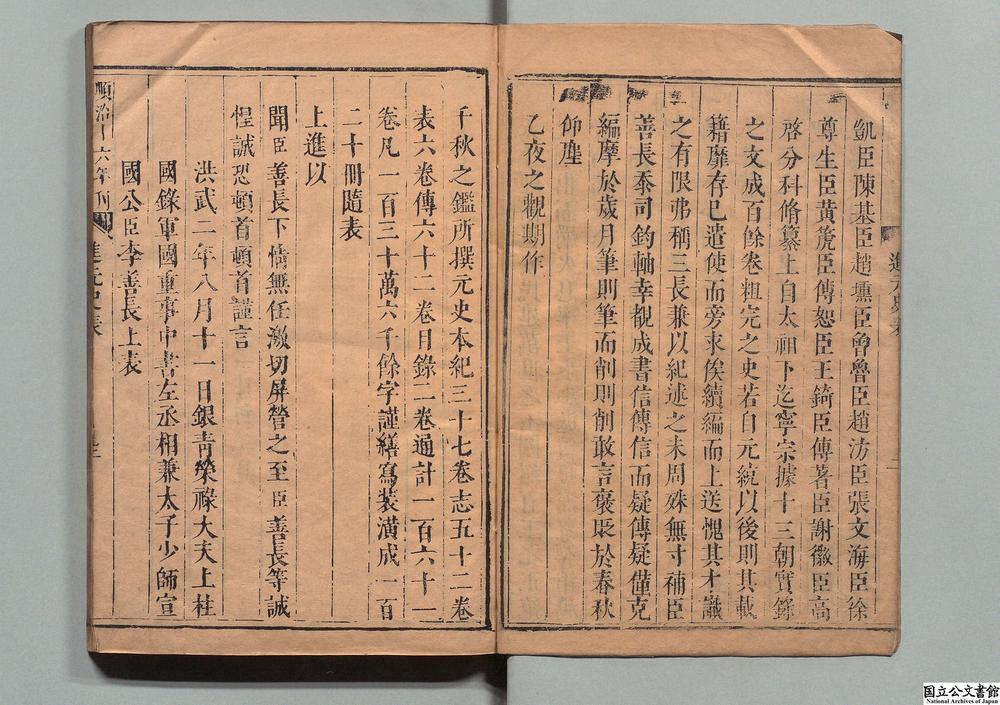 凱臣陳基臣趙壎臣曾魯臣趙汸臣張文海臣徐
尊生臣黃箎臣傳恕臣王錡臣傳著臣謝徽臣高
啓分科脩纂上自太祖下迄寧宗據十三朝實錄
之文成百餘卷粗完之史若自元統以後則其載
籍靡存已遣使而旁求俟續編而上送愧其才識
之有限弗稱三長兼以紀述之未周殊無寸補臣
善長忝司鈞軸幸覩成書信傳信而疑傳疑僅克
編摩於歲月筆則筆而削則削敢言褒貶於春秋
仰塵
乙夜之觀期作
千秋之鑑所撰元史本紀三十七卷志五十二卷
表六卷傳六十二卷目錄二卷通計一百六十一
卷凡一百三十萬六千餘字謹繕寫裝潢成一百
二十冊隨表
上進以
聞臣善長下情無任激切屏營之至臣善長等誠
惶誠恐頓首頓首謹言
洪武二年八月十一日銀青榮祿大夫上柱
國錄軍國重事中書左丞相兼太子少師宣
國公臣李善長上表
順治十六年刊
進元史表
国立公文書館
National Archives of Japan